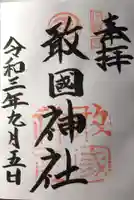 奉拝
敢國神社
令和三年九月五日